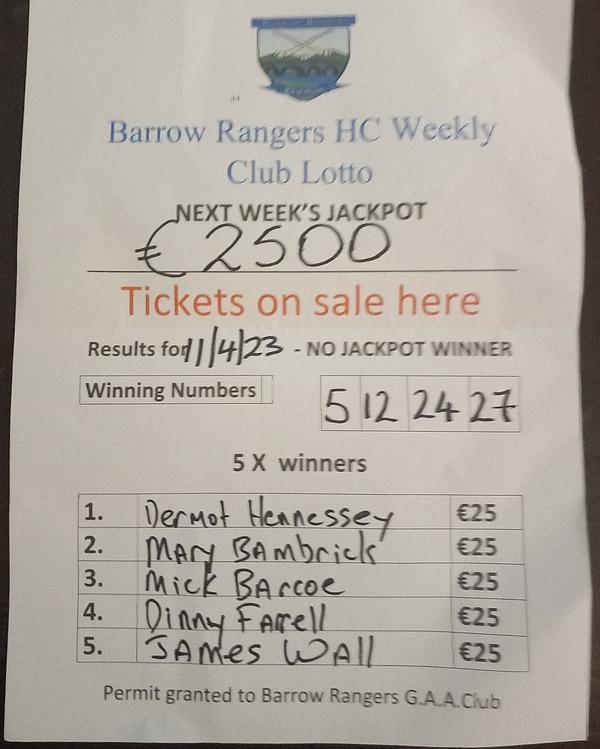 Barrow Rangers HC Weekly
Club Lotto
NEXT WEEK'S JACKPOT
€2500
Tickets on sale here
Results for 11/4/23 - NO JACKPOT WINNER
Winning Numbers 5 12 24 27
5 X winners
1. Dermot Hennessey €25
2. MARY BAMbrick €25
3. Mick BARcoe €25
4. Dinny FARell €25
5. JAMes WAll €25
Permit granted to Barrow Rangers G.A.A.Club